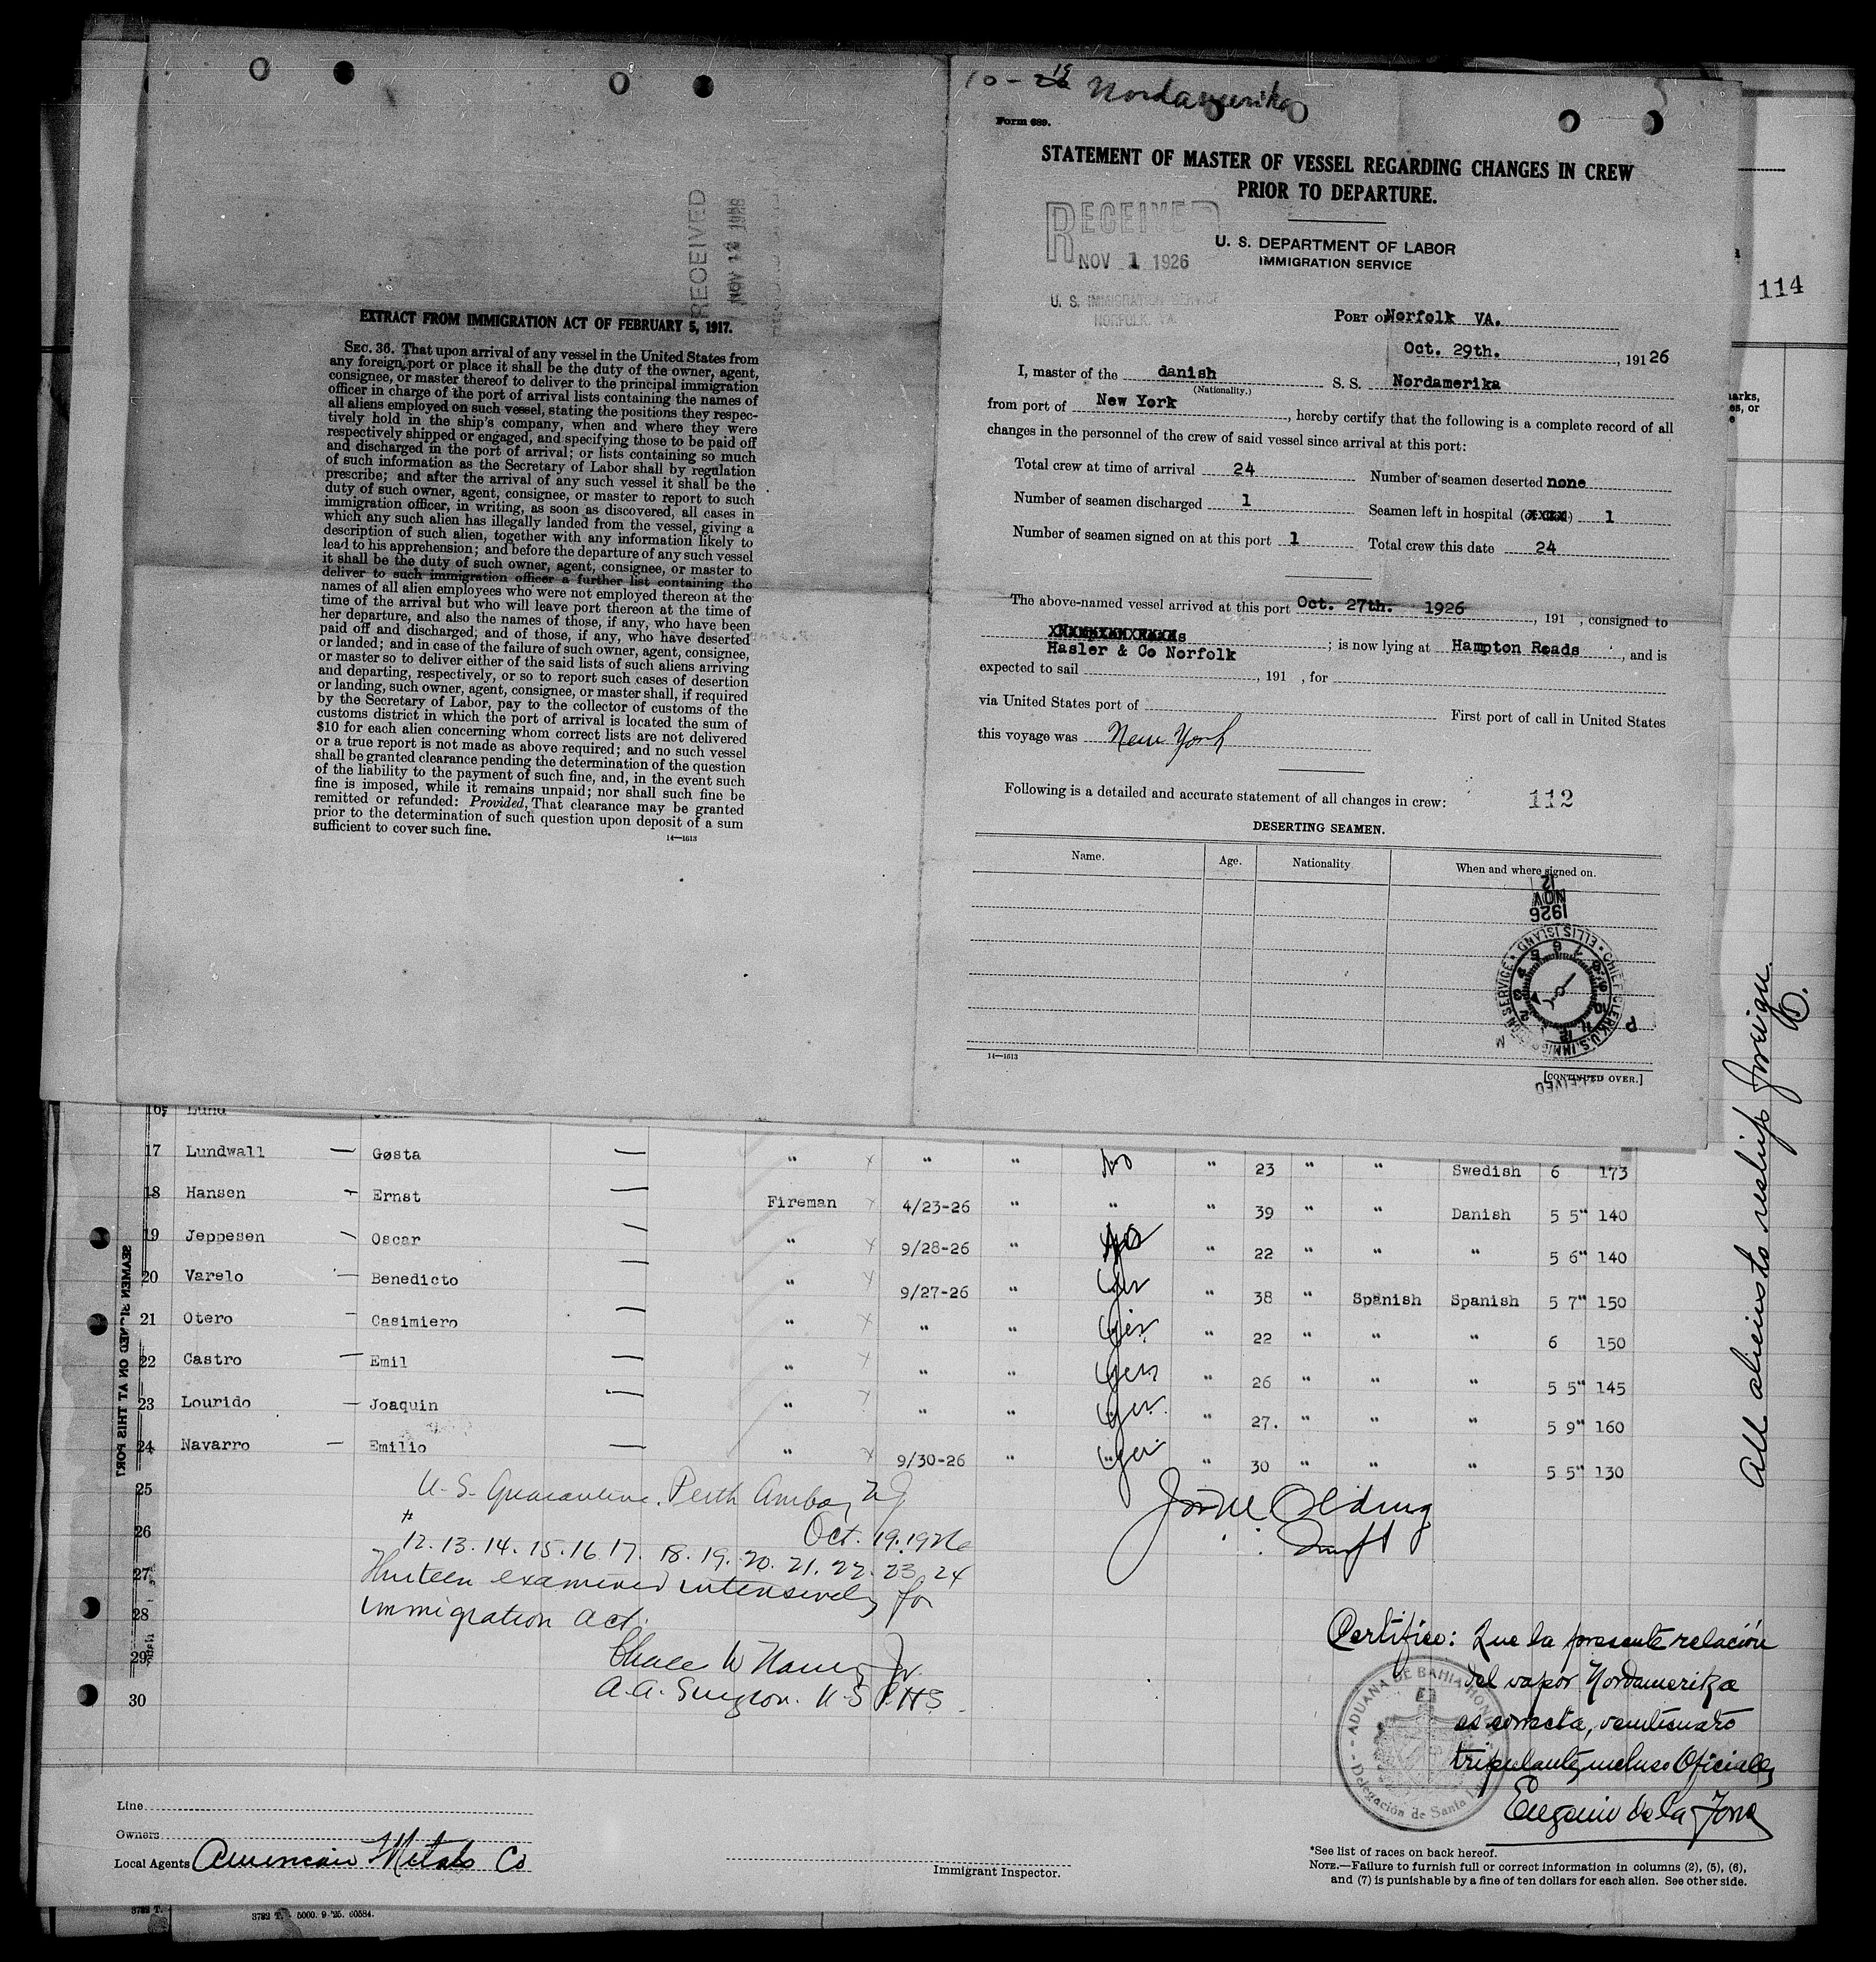 10-19 Nordamerika
Form 689.
STATEMENT OF MASTER OF VESSEL REGARDING CHANGES IN CREW
PRIOR TO DEPARTURE.
RECEIVED
NOV 1 1926
U. S. IMMIGRATION SERVICE
NORFOLK, VA.
U. S. DEPARTMENT OF LABOR
IMMIGRATION SERVICE
PORT OF Norfolk VA.
Oct. 29th. , 191 26
I, master of the danish S. S. Nordamerika
(Nationality.)
from port of New York , hereby certify that the following is a complete record of all
changes in the personnel of the crew of said vessel since arrival at this port:
Total crew at time of arrival 24 Number of seamen deserted none
Number of seamen discharged 1 Seamen left in hospital 1
Number of seamen signed on at this port 1 Total crew this date 24
The above-named vessel arrived at this port Oct. 27th. 1926 , 191 , consigned to
Hasler & Co Norfolk ; is now lying at Hampton Roads , and is
expected to sail , 191 , for
via United States port of First port of call in United States
this voyage was New York
Following is a detailed and accurate statement of all changes in crew: 112
DESERTING SEAMEN.
Name. Age. Nationality. When and where signed on.
1926
NOV
12
CHIEF CLERK U.S. IMMIGRATION SERVICE • ELLIS ISLAND •
14—1613
[CONTINUED OVER.]
RECEIVED
NOV 12 1926
EXTRACT FROM IMMIGRATION ACT OF FEBRUARY 5, 1917.
SEC. 36. That upon arrival of any vessel in the United States from
any foreign port or place it shall be the duty of the owner, agent,
consignee, or master thereof to deliver to the principal immigration
officer in charge of the port of arrival lists containing the names of
all aliens employed on such vessel, stating the positions they respec-
tively hold in the ship's company, when and where they were
respectively shipped or engaged, and specifying those to be paid off
and discharged in the port of arrival; or lists containing so much
of such information as the Secretary of Labor shall by regulation
prescribe; and after the arrival of any such vessel it shall be the
duty of such owner, agent, consignee, or master to report to such
immigration officer, in writing, as soon as discovered, all cases in
which any such alien has illegally landed from the vessel, giving a
description of such alien, together with any information likely to
lead to his apprehension; and before the departure of any such vessel
it shall be the duty of such owner, agent, consignee, or master to
deliver to such immigration officer a further list containing the
names of all alien employees who were not employed thereon at the
time of the arrival but who will leave port thereon at the time of
her departure, and also the names of those, if any, who have been
paid off and discharged; and of those, if any, who have deserted
or landed; and in case of the failure of such owner, agent, consignee,
or master so to deliver either of the said lists of such aliens arriving
and departing, respectively, or so to report such cases of desertion
or landing, such owner, agent, consignee, or master shall, if required
by the Secretary of Labor, pay to the collector of customs of the
customs district in which the port of arrival is located the sum of
$10 for each alien concerning whom correct lists are not delivered
or a true report is not made as above required; and no such vessel
shall be granted clearance pending the determination of the question
of the liability to the payment of such fine, and, in the event such
fine is imposed, while it remains unpaid; nor shall such fine be
remitted or refunded: Provided, That clearance may be granted
prior to the determination of such question upon deposit of a sum
sufficient to cover such fine.
14—1613
114
All aliens to reship foreign.
SEAMEN SIGNED ON AT THIS PORT
16 Lund
17 Lundwall — Gøsta — " " " No " 23 " " Swedish 6 173
18 Hansen — Ernst — Fireman 4/23-26 " " " 39 " " Danish 5 5" 140
19 Jeppesen — Oscar — " 9/28-26 " No " 22 " " " 5 6" 140
20 Varelo — Benedicto " 9/27-26 " Yes " 38 " Spanish Spanish 5 7" 150
21 Otero — Casimiero — " " " Yes " 22 " " " 6 150
22 Castro — Emil — " " " Yes " 26 " " " 5 5" 145
23 Lourido — Joaquin — " " " Yes " 27. " " " 5 9" 160
24 Navarro — Emilio — " 9/30-26 " Yes " 30 " " " 5 5" 130
25 U.S. Quarantine. Perth Amboy NJ
26 Oct. 19. 1926
# 12. 13. 14. 15. 16. 17. 18. 19. 20. 21. 22. 23. 24
27 Thirteen examined intensively for
28 immigration act.
29
A.A. Surgeon. U.S.P.H.S.
30
Certifico: Que la presente relación
del vapor Nordamerika
es correcta, veinticuatro
tripulantes incluso Oficiales
Eugenio de la
ADUANA DE BAHIA HONDA
Delegación de Santa
Line
Owners
Local Agents American Metals Co
Immigrant Inspector.
*See list of races on back hereof.
NOTE.—Failure to furnish full or correct information in columns (2), (5), (6),
and (7) is punishable by a fine of ten dollars for each alien. See other side.
3782 T. 5000. 9-'25. 60584.